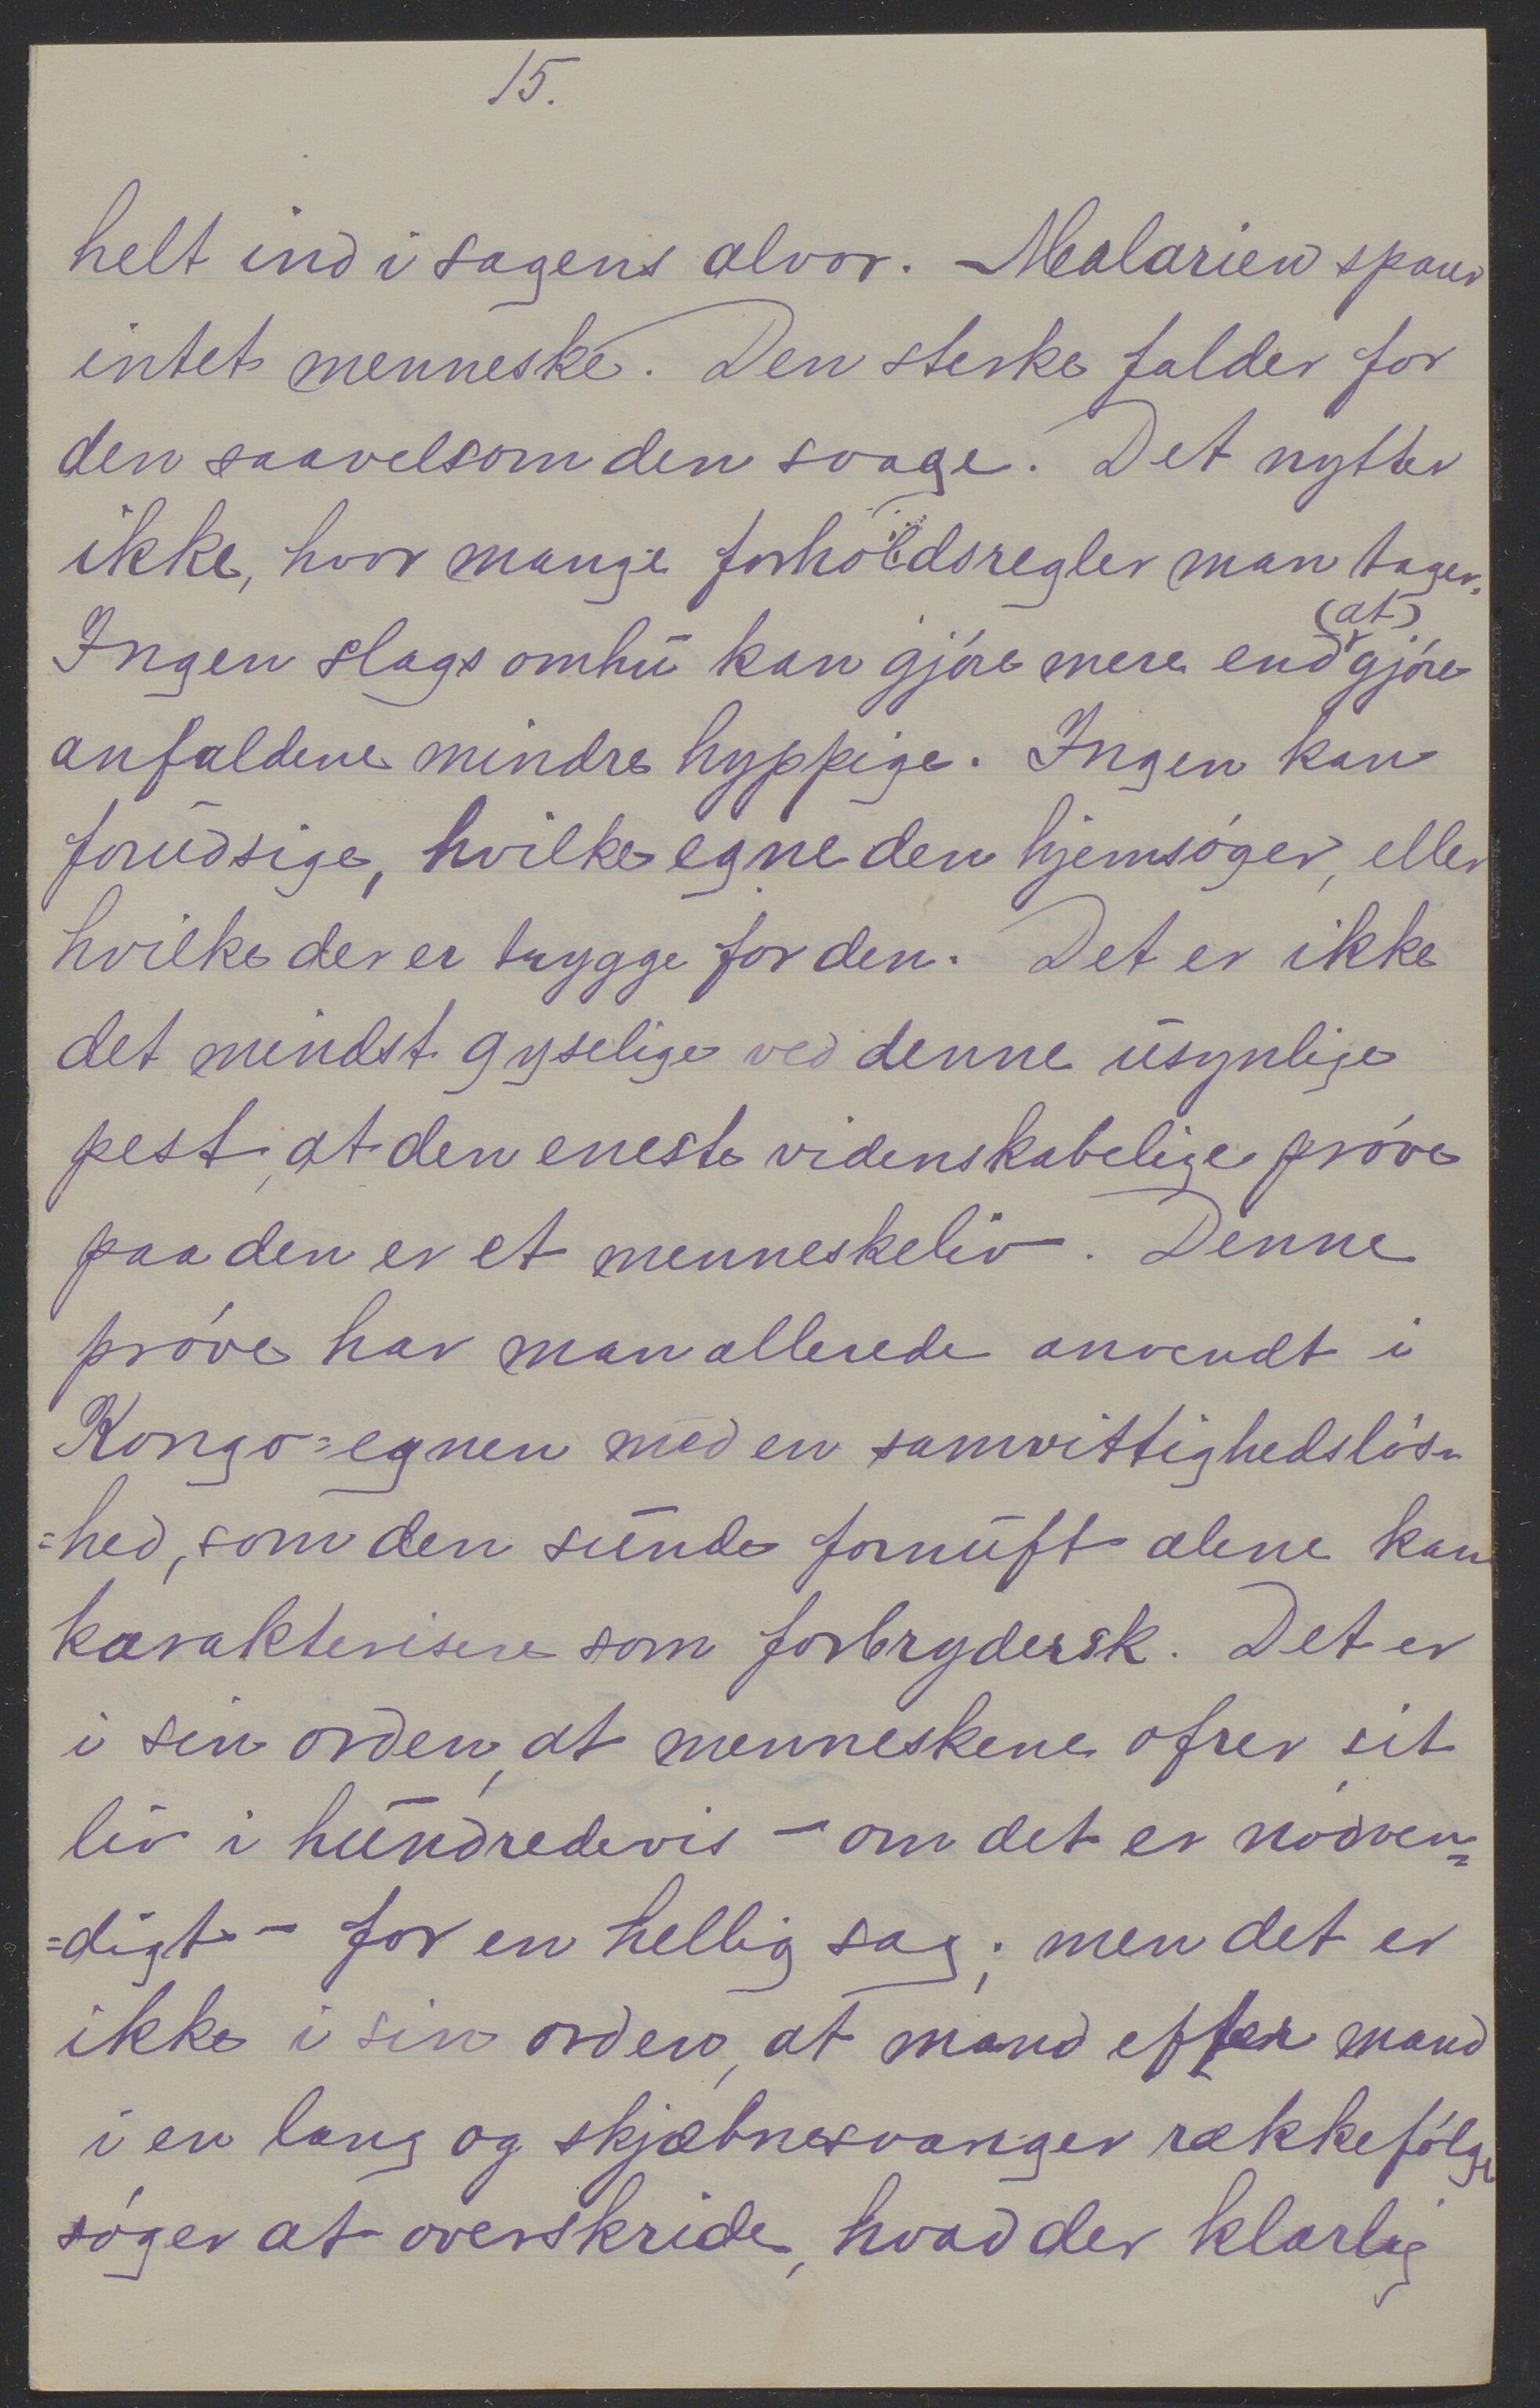 15.
helt ind i sagens alvor. Malarien sparer
intet menneske. Den sterke falder for
den saavelsom den svage. Det nytter
ikke, hvor mange forholdsregler man tager.
(at)
Ingen slags omhu kan gjóre mere end gjóre
anfaldene mindre hyppige. Ingen kan
forudsige, hvilke egne den hjemsóger, eller
hvilke der er trygge for den. Det er ikke
det mindst gyselige ved denne usynlige
pest, at den eneste videnskabelige próve
paa den er et menneskeliv. Denne
próve har man allerede anvendt i
Kongo=egnen med en samvittighedslós=
=hed, som den sunde fornuft alene kan
karakterisere som forbrydersk. Det er
i sin orden, at menneskene ofrer sit
liv i hundredevis – om det er nódven=
=digt – for en hellig sag; men det er
ikke i sin orden, at mand efter mand
i en lang og skjæbnesvanger rækkefólge
sóger at overskride, hvad der klarlig